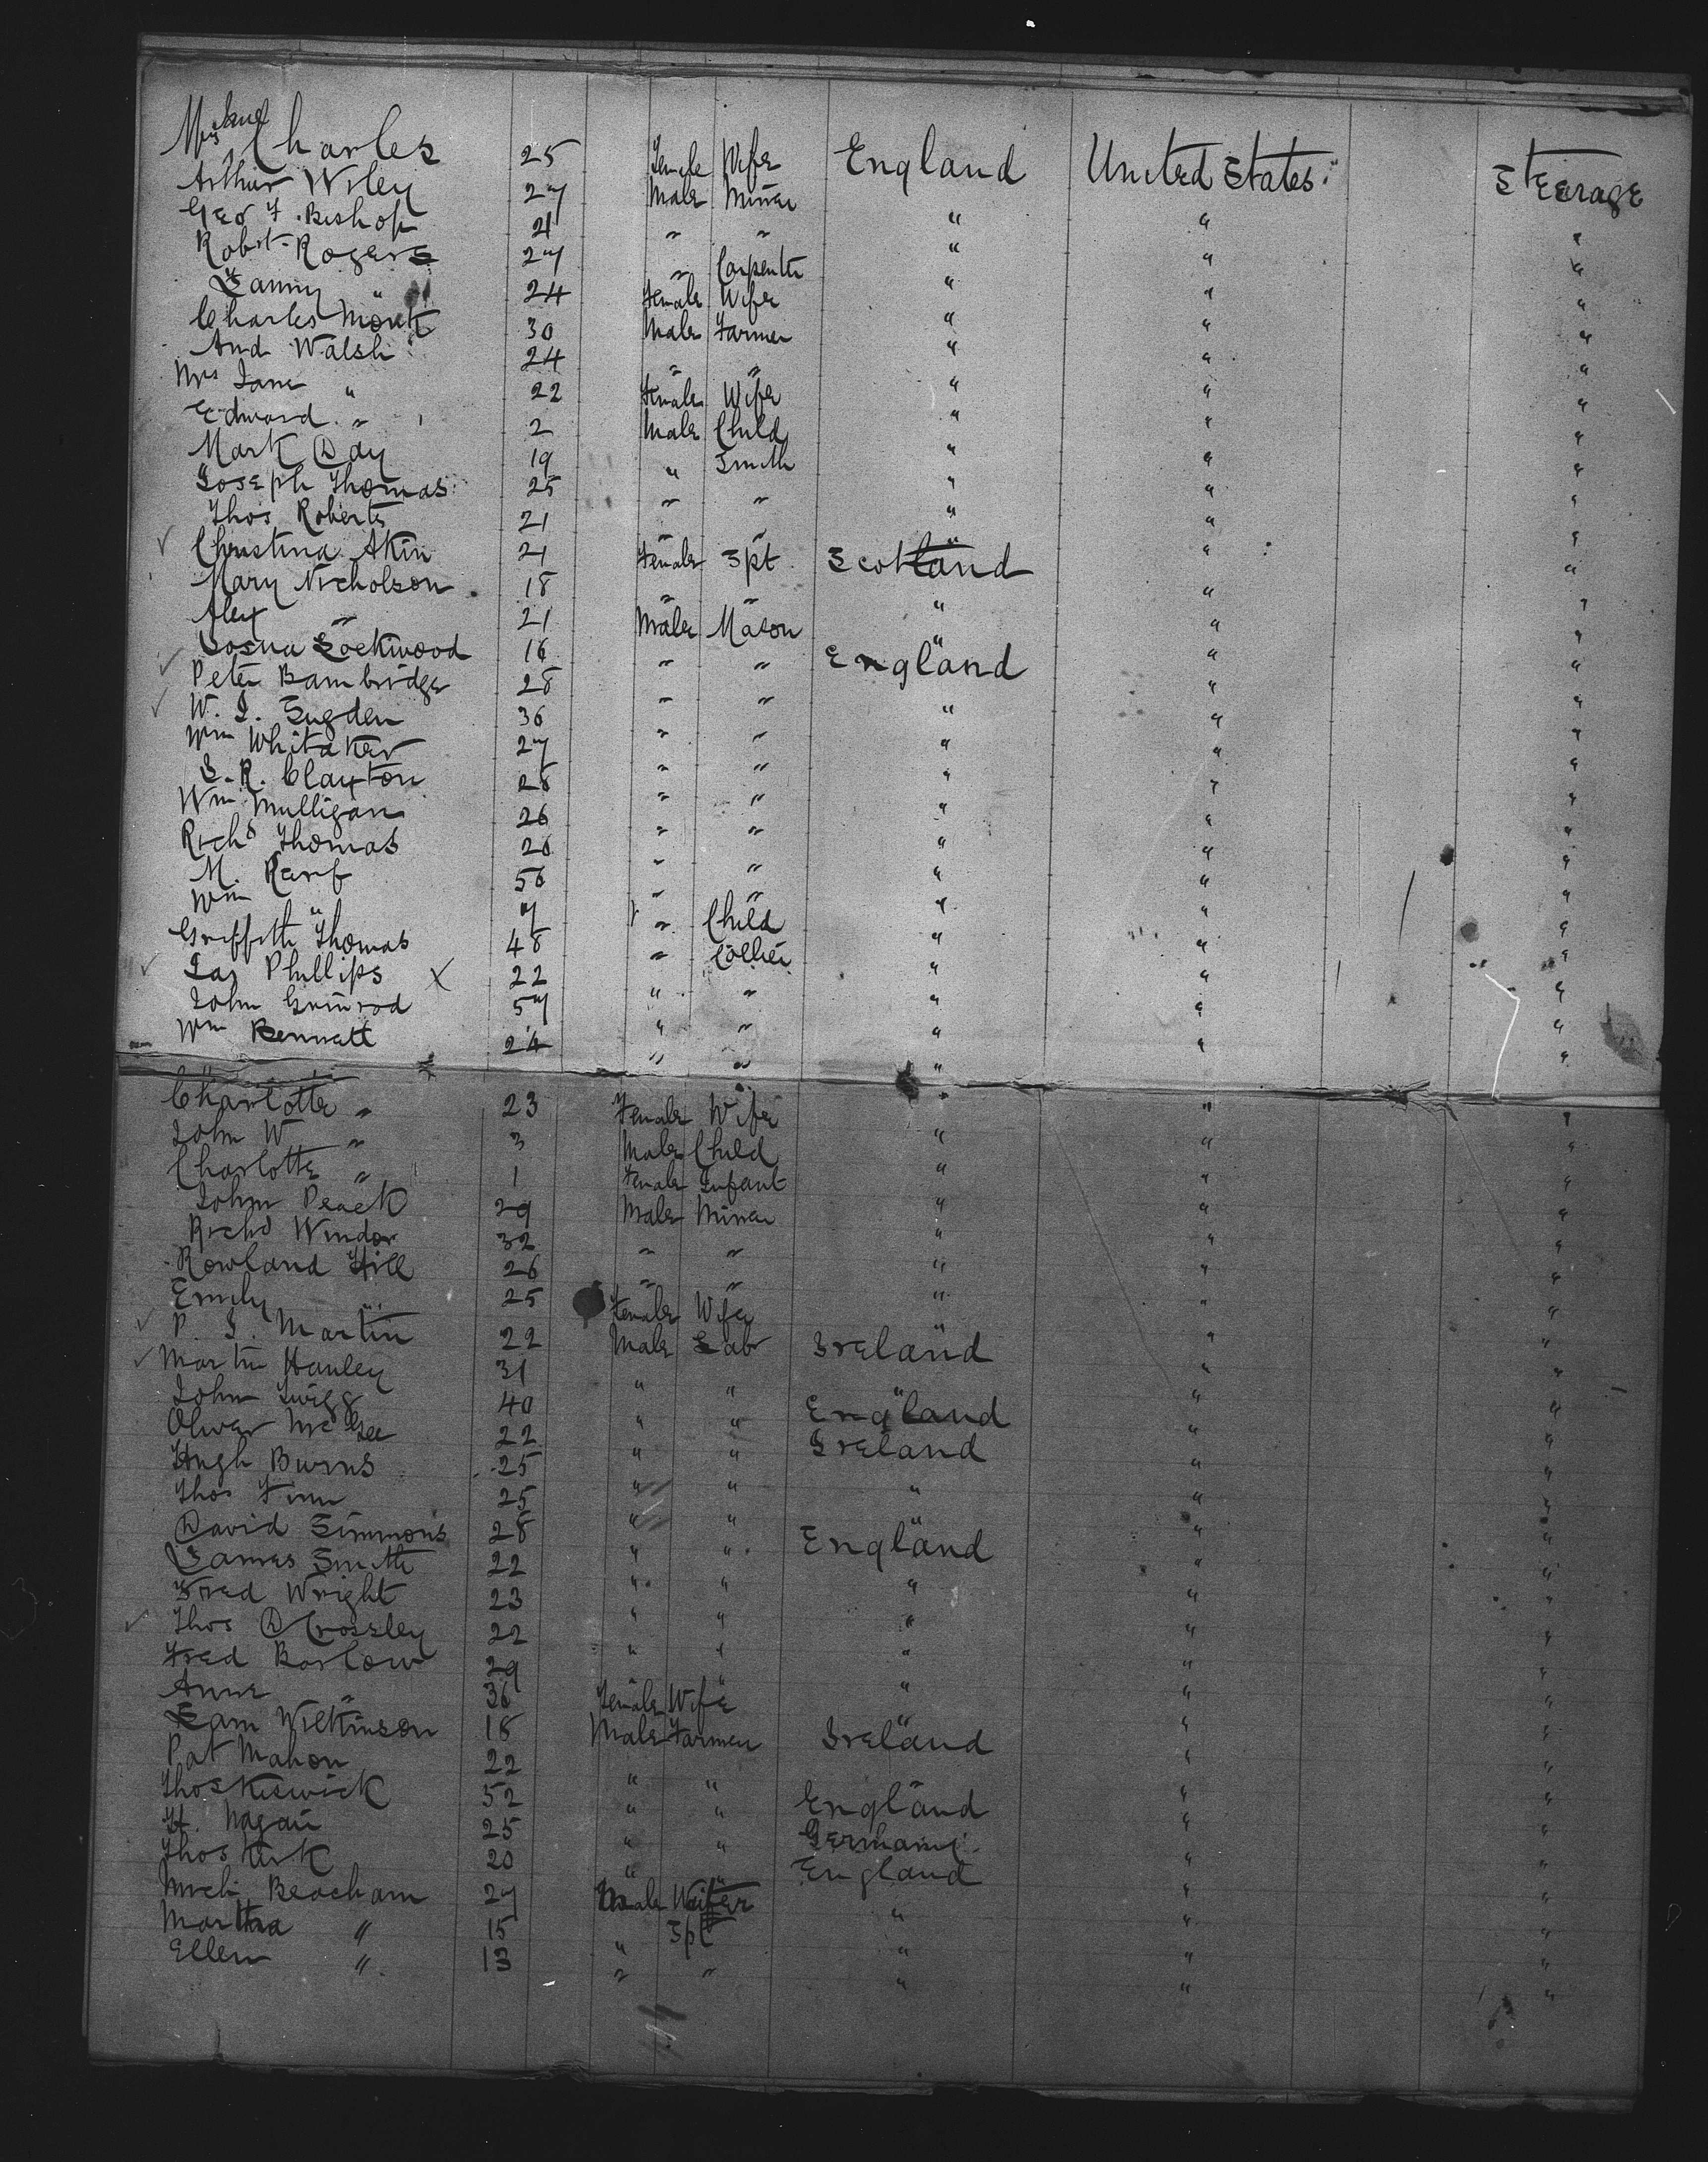 Mrs Jane Charles 25 Female Wife England United States Steerage
Arthur Wiley 27 Male Miner " " "
Geo F. Bishop 21 " " " " "
Robt. Rogers 27 " Carpenter " " "
Fanny " 24 Female Wife " " "
Charles Monk 30 Male Farmer " " "
And Walsh 24 " " " " "
Mrs Jane " 22 Female Wife " " "
Edward " 2 Male Child " " "
Mark Day 19 " Smith " " "
Joseph Thomas 25 " " " " "
Thos Roberts 21 " " " " "
Christina Akin 21 Female Spt Scotland " "
Mary Nicholson 18 " " " " "
Alex " 21 Male Mason " " "
Josua Lockwood 16 " " England " "
Peter Bambridge 28 " " " " "
W. J. Sugden 36 " " " " "
Wm Whitaker 27 " " " " "
S. R. Clayton 28 " " " " "
Wm Mulligan 26 " " " " "
Richd Thomas 26 " " " " "
M. 56 " " " " "
Wm " 7 " Child " " "
Griffith Thomas 48 " Collier " " "
Jas Phillips X 22 " " " " "
John Grimrod 57 " " " " "
Wm Bennett 24 " " " " "
Charlotte " 23 Female Wife " " "
John W " 3 Male Child " " "
Charlotte " 1 Female Infant " " "
John Peack 29 Male Miner " " "
Richd Windor 32 " " " " "
Rowland Hill 26 " " " " "
Emily " 25 Female Wife " " "
P. J. Martin 22 Male Lab Ireland " "
Martin Hanley 31 " " " " "
John Twigg 40 " " England " "
Oliver McGee 22 " " Ireland " "
Hugh Burns 25 " " " " "
Thos Finn 25 " " " " "
David Simmons 28 " " England " "
James Smith 22 " " " " "
Fred Wright 23 " " " " "
Thos D Crossley 22 " " " " "
Fred Barlow 29 " " " " "
Anne " 36 Female Wife " " "
Sam Wilkinson 18 Male Farmer Ireland " "
Pat Mahon 22 " " " " "
Thos Keswick 52 " " England " "
H. Nagan 25 " " Germany " "
Thos Kirk 20 " " England " "
Mich Beacham 27 Male Waiter " " "
Martha " 15 " Spt " " "
Ellen " 13 " " " " "